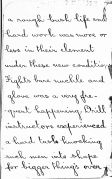 a rough bush life and
hard work was more or
less in their element
under these new condition
Fights bare nuckle and
glove was a very fre-
quent happening. Drill
instructors experienced
a hard task knocking
such men into shape
for bigger things over